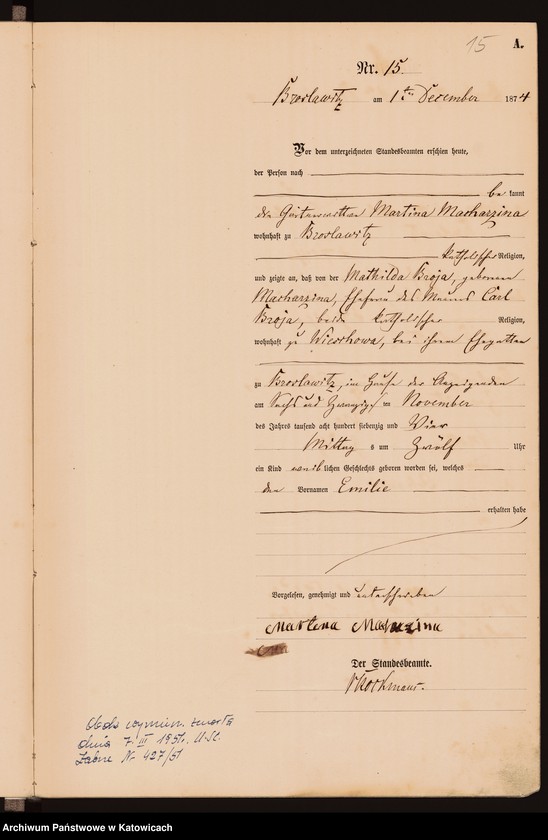 15
A.
Nr. 15.
Broslawitz am 1ten December 1874
Vor dem unterzeichneten Standesbeamten erschien heute,
der Person nach
be kannt
die Martina Macharzina
wohnhaft zu Broslawitz
katholischer Religion,
und zeigte an, daß von der Mathilda Broja, geborenen
Macharzina, Ehefrau des Carl
Broja, beide katholischer Religion,
wohnhaft zu Wieschowa, bei ihrem Ehegatten
zu Broslawitz, im Hause der Anzeigenden
am Sechs und Zwanzigsten November
des Jahres tausend acht hundert siebenzig und Vier
Mittag s um Zwölf Uhr
ein Kind weib lichen Geschlechts geboren worden sei, welches
den Vornamen Emilie
erhalten habe
Vorgelesen, genehmigt und unterschrieben
Martena
Der Standesbeamte.
dnia 7. III 1951. USC.
Zabrze Nr. 427/51
Archiwum Państwowe w Katowicach